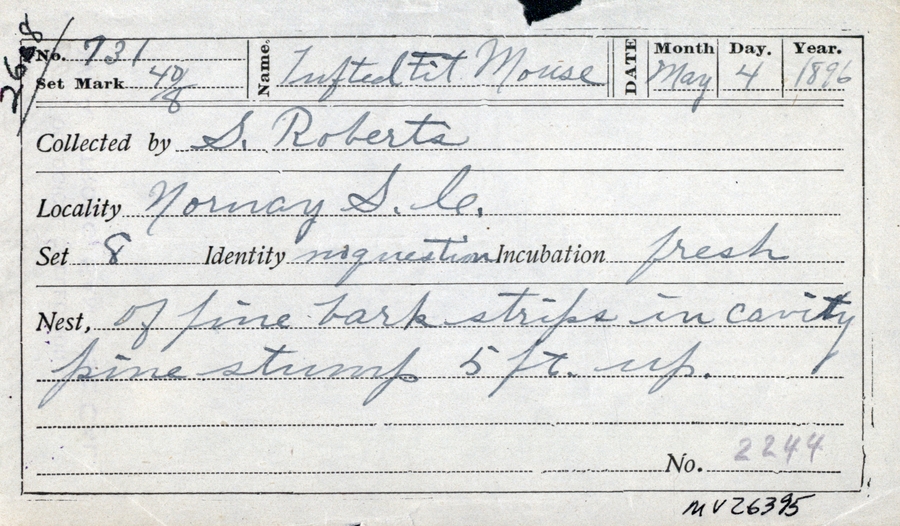 2688
No. 731 Name. Tufted Tit Mouse DATE Month Day. Year.
Set Mark 40/8 May 4 1896
Collected by S. Roberts
Locality Nornay S. C.
Set 8 Identity no question Incubation fresh
Nest, of pine bark strips in cavity
pine stump 5 ft. up.
No. 2244
MV26395